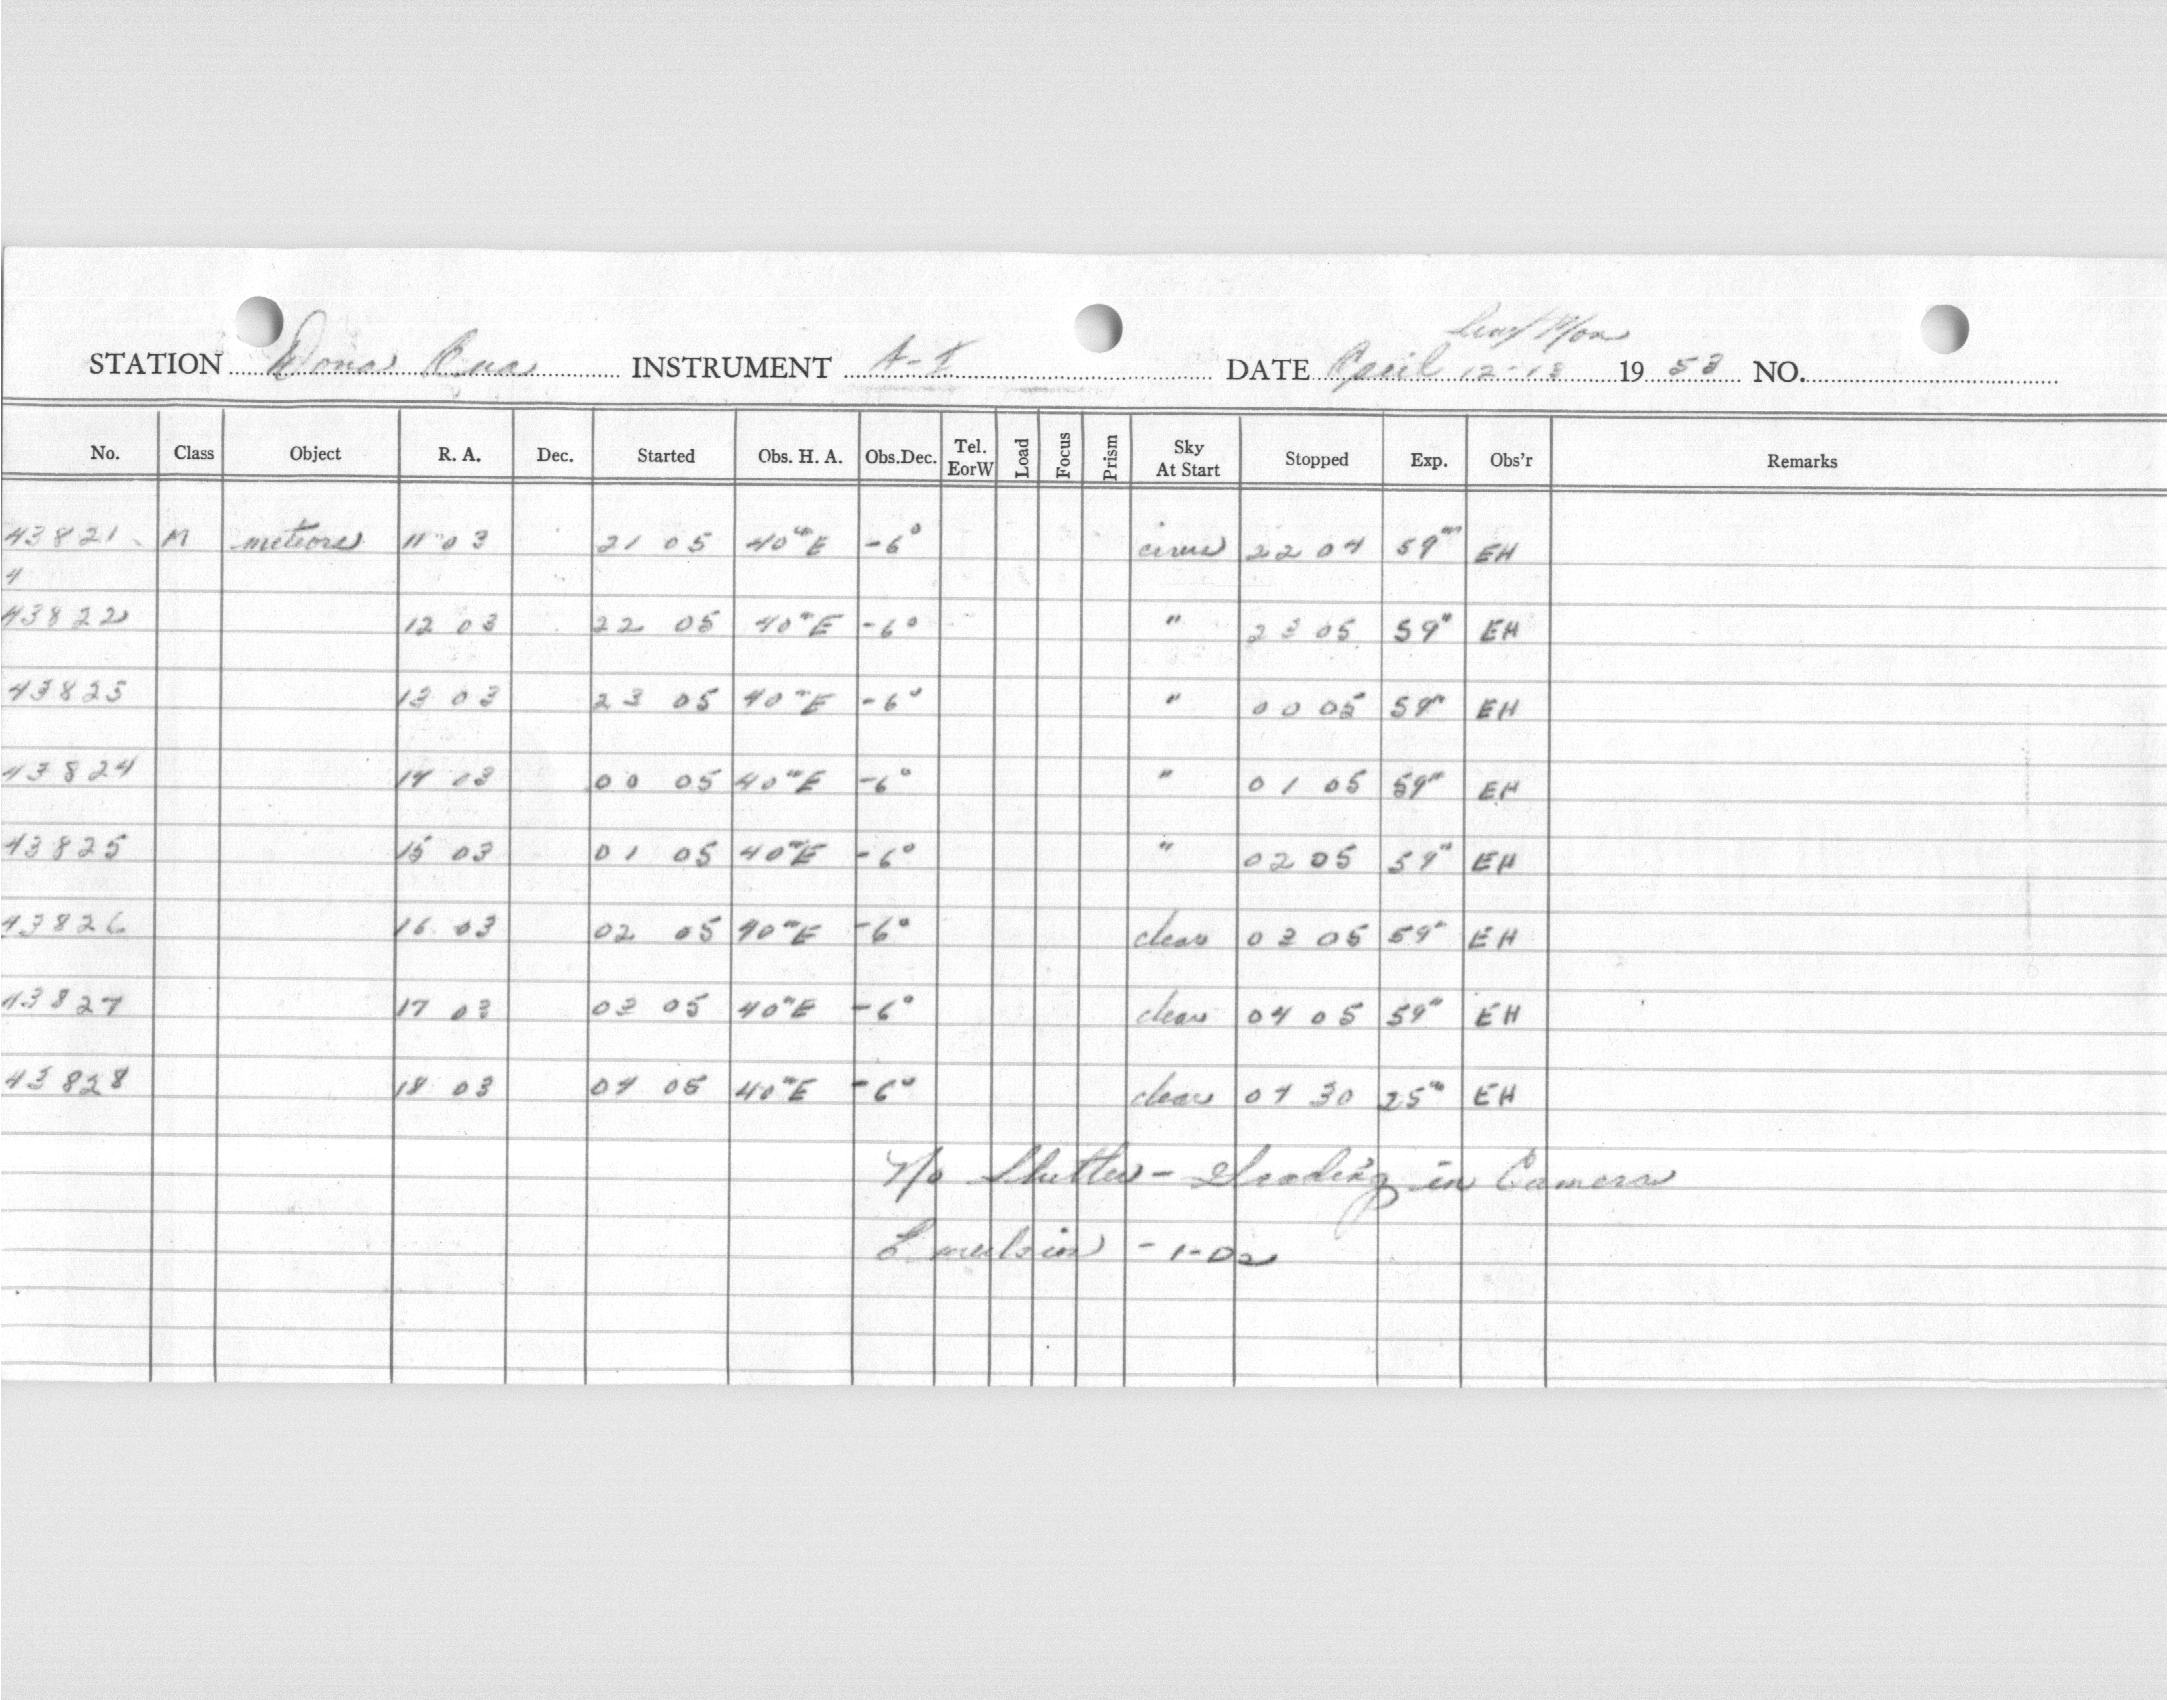 Sun/Mon
STATION Dona Ana INSTRUMENT A-I DATE April 12-13 1953 NO.
No. Class Object R. A. Dec. Started Obs. H. A. Obs.Dec. Tel. EorW Load Focus Prism Sky At Start Stopped Exp. Obs'r Remarks
43821 M meteors 11 03 21 05 40ᵐE -6° cirrus 22 04 59ᵐ EH
4
43822 12 03 22 05 40ᵐE -6° " 23 05 59ᵐ EH
43823 13 03 23 05 40ᵐE -6° " 00 05 59ᵐ EH
43824 14 03 00 05 40ᵐE -6° " 01 05 59ᵐ EH
43825 15 03 01 05 40ᵐE -6° " 02 05 59ᵐ EH
43826 16 03 02 05 40ᵐE -6° clear 03 05 59ᵐ EH
43827 17 03 03 05 40ᵐE -6° clear 04 05 59ᵐ EH
43828 18 03 04 05 40ᵐE -6° clear 04 30 25ᵐ EH
No Shutter - in Camera
Emulsion - 1-O2